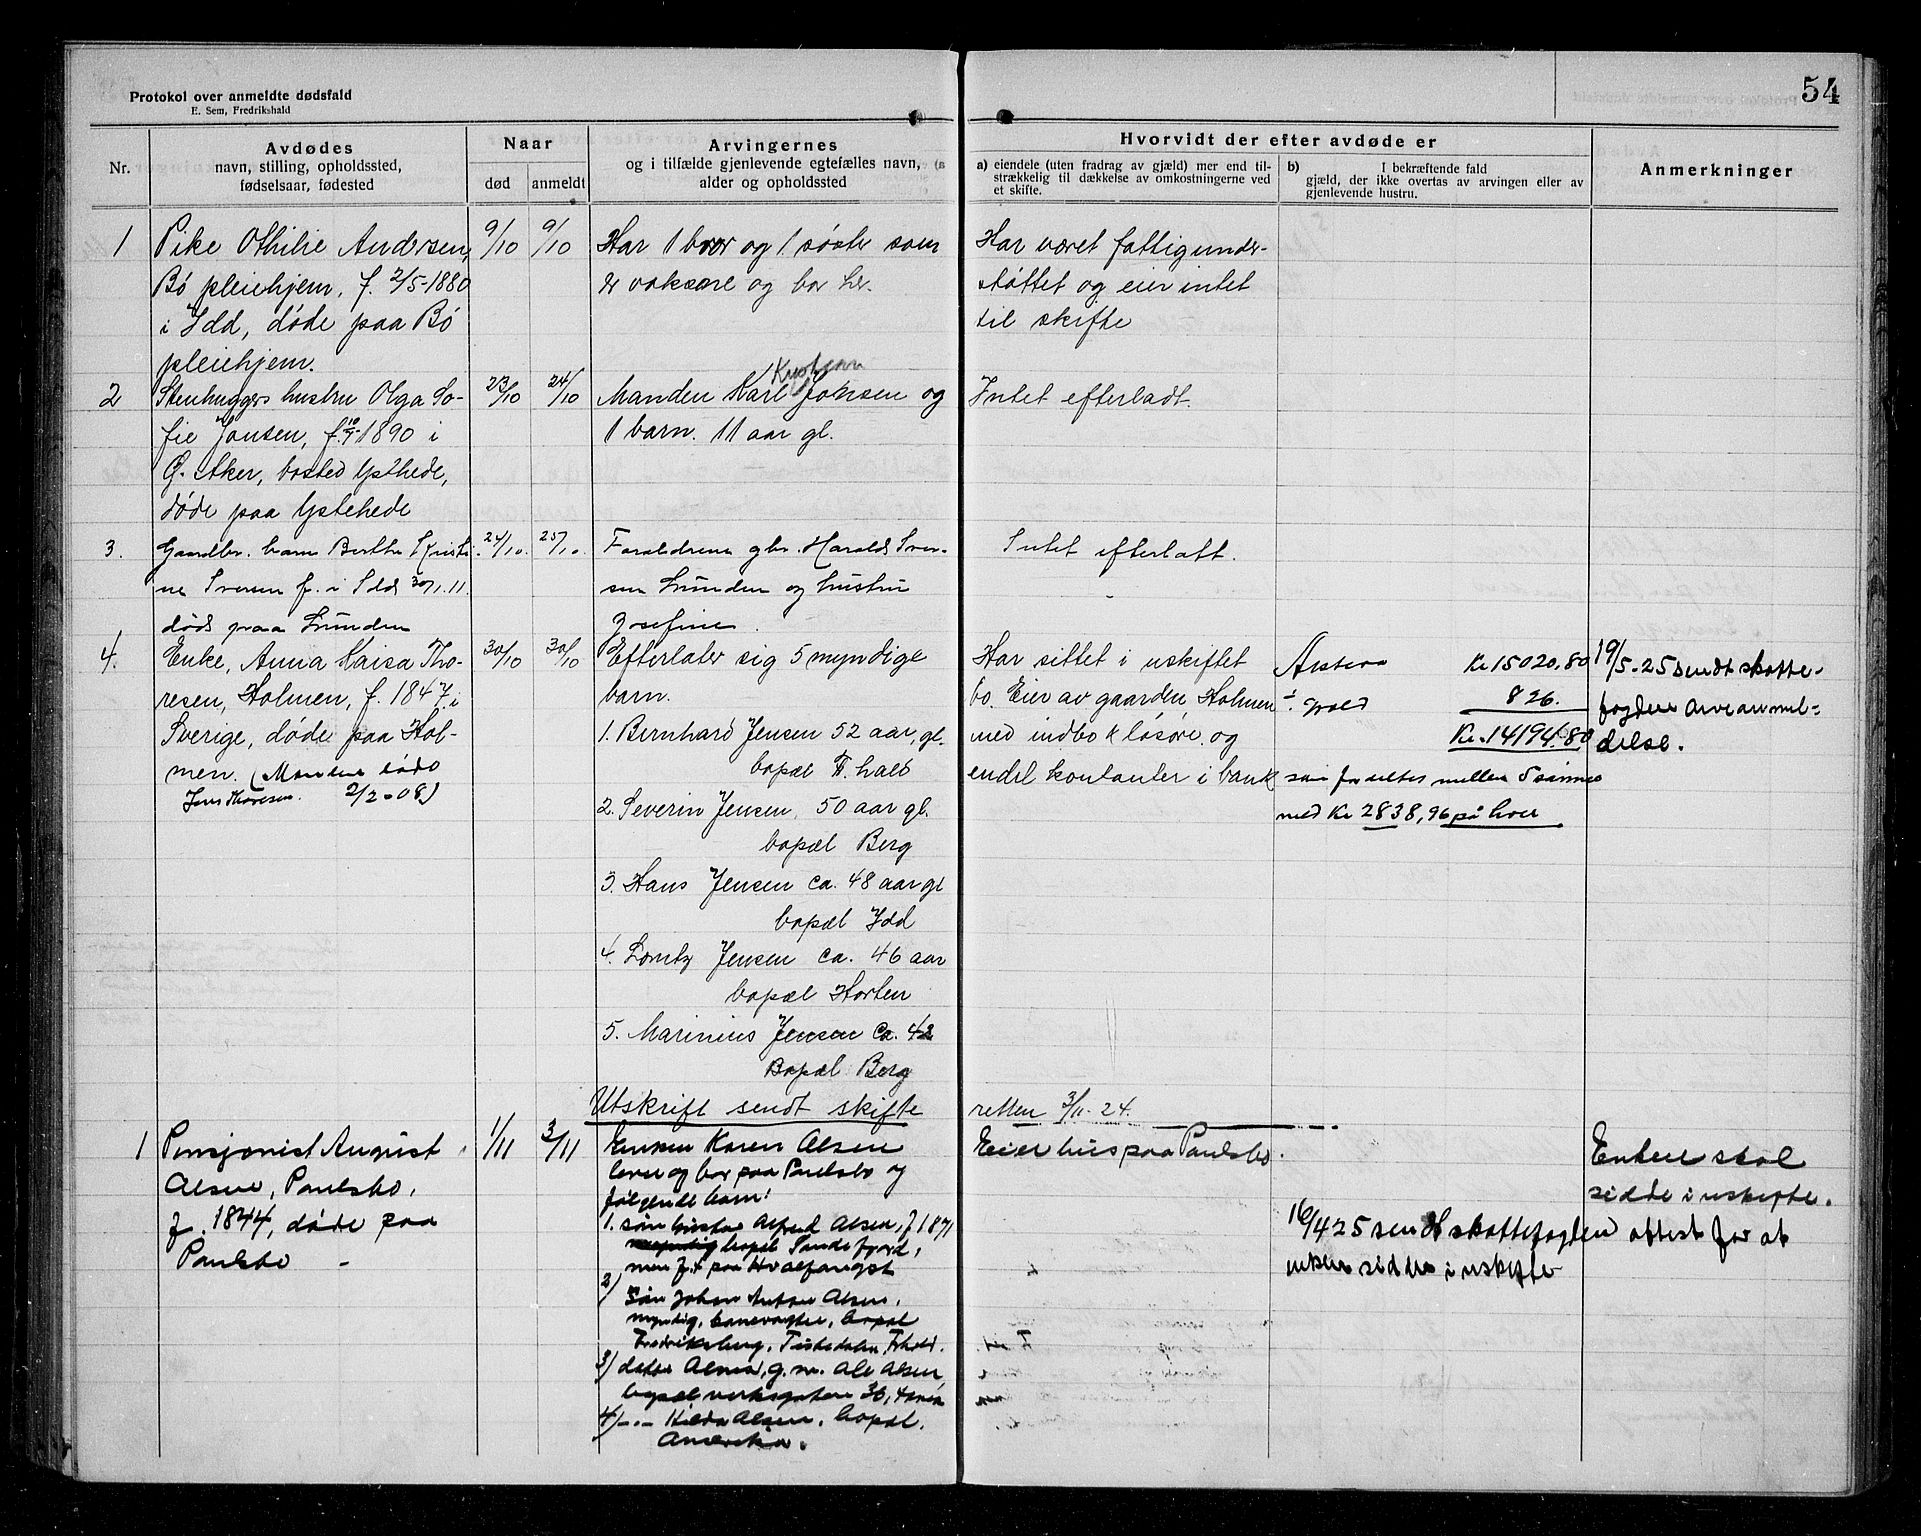 54
Protokol over anmeldte dødsfald
E. Sem, Fredrikshald
Nr.
Avdødes
navn, stilling, opholdssted,
fødselsaar, fødested
Naar
død
anmeldt
Arvingernes
og i tilfælde gjenlevende egtefælles navn,
alder og opholdssted
Hvorvidt der efter avdøde er
a) eiendele (uten fradrag av gjæld) mer end til-
strækkelig til dækkelse av omkostningerne ved
et skifte.
b) I bekræftende fald
gjæld, der ikke overtas av arvingen eller av
gjenlevende hustru.
Anmerkninger
1
Pike Othilie Andersen,
Bø pleiehjem, f. 2/5-1880
i Idd, døde paa Bø
pleiehjem.
9/10
9/10
Har 1 bror og 1 søster som
er voksne og bor her.
Har været fattigunder-
støttet og eier intet
til skifte
2
Stenhuggers hustru Olga So-
fie Jonsen, f. 10/4-1890 i
Ø. Aker, bosted Ystehede,
døde paa Ystehede
23/10
24/10
Kristian
Manden Karl Jonsen og
1 barn. 11 aar gl.
Intet efterladt.
3.
Gaardbr. barn Berthe Kristi-
ne Iversen f. i Idd 30/1.11.
døds paa Lunden
24/10.
25/10.
Forældrene gbr. Harald Iver-
sen Lunden og hustru
Josefine.
Intet efterlatt.
4.
Enke, Anna Kaisa Tho-
resen, Holmen, f. 1847 i
Sverige, døde paa Hol-
men. (Manden døde
Jens Thoresen. 2/2-08)
30/10
30/10
Efterlater sig 5 myndige
barn.
1. Bernhard Jensen 52 aar, gl.
bopæl F.hald
2. Severin Jensen, 50 aar gl.
bopæl Berg
3. Hans Jensen ca. 48 aar gl
bopæl Idd
4. Lorntz Jensen ca. 46 aar
bopæl Horten
5. Marinius Jensen ca. 42
Bopæl Berg
Har sittet i uskiftet
bo. Eier av gaarden Holmen
med indbo & løsøre, og
endel kontanter i bank
Kr 15020,80
÷ gjæld 826.
Kr. 14194.80
som fordeltes mellem 5 sønner
med Kr 2838,96 på hver
19/5-25 sendt skatte-
fogden arveanmel-
delse.
Utskrift sendt skifte
retten 3/11-24.
1
Pensjonist August
Olsen, Paulsbo,
f. 1844, døde paa
Paulsbo -
1/11
3/11
Enken Karen Olsen
lever og bor paa Paulsbo og
følgende barn:
1. søn Gustav Alfred Olsen, f 1871
myndig bopæl Sandefjord,
men f.t paa Hvalfangst
2)
Søn Johan Anton Olsen,
myndig, banevogter, bopæl
Fredriksberg, Tistedalen, F.hald.
3) datter Alma, g.m. Ole Olsen,
bopæl verksgaten 36,
4) -"- Hilda Olsen, bopæl.
Amerika.
Eier hus paa Paulsbo.
Enken skal
sidde i uskifte.
16/4 25 sendt skattefogden attest for at
enken sidder i uskifte